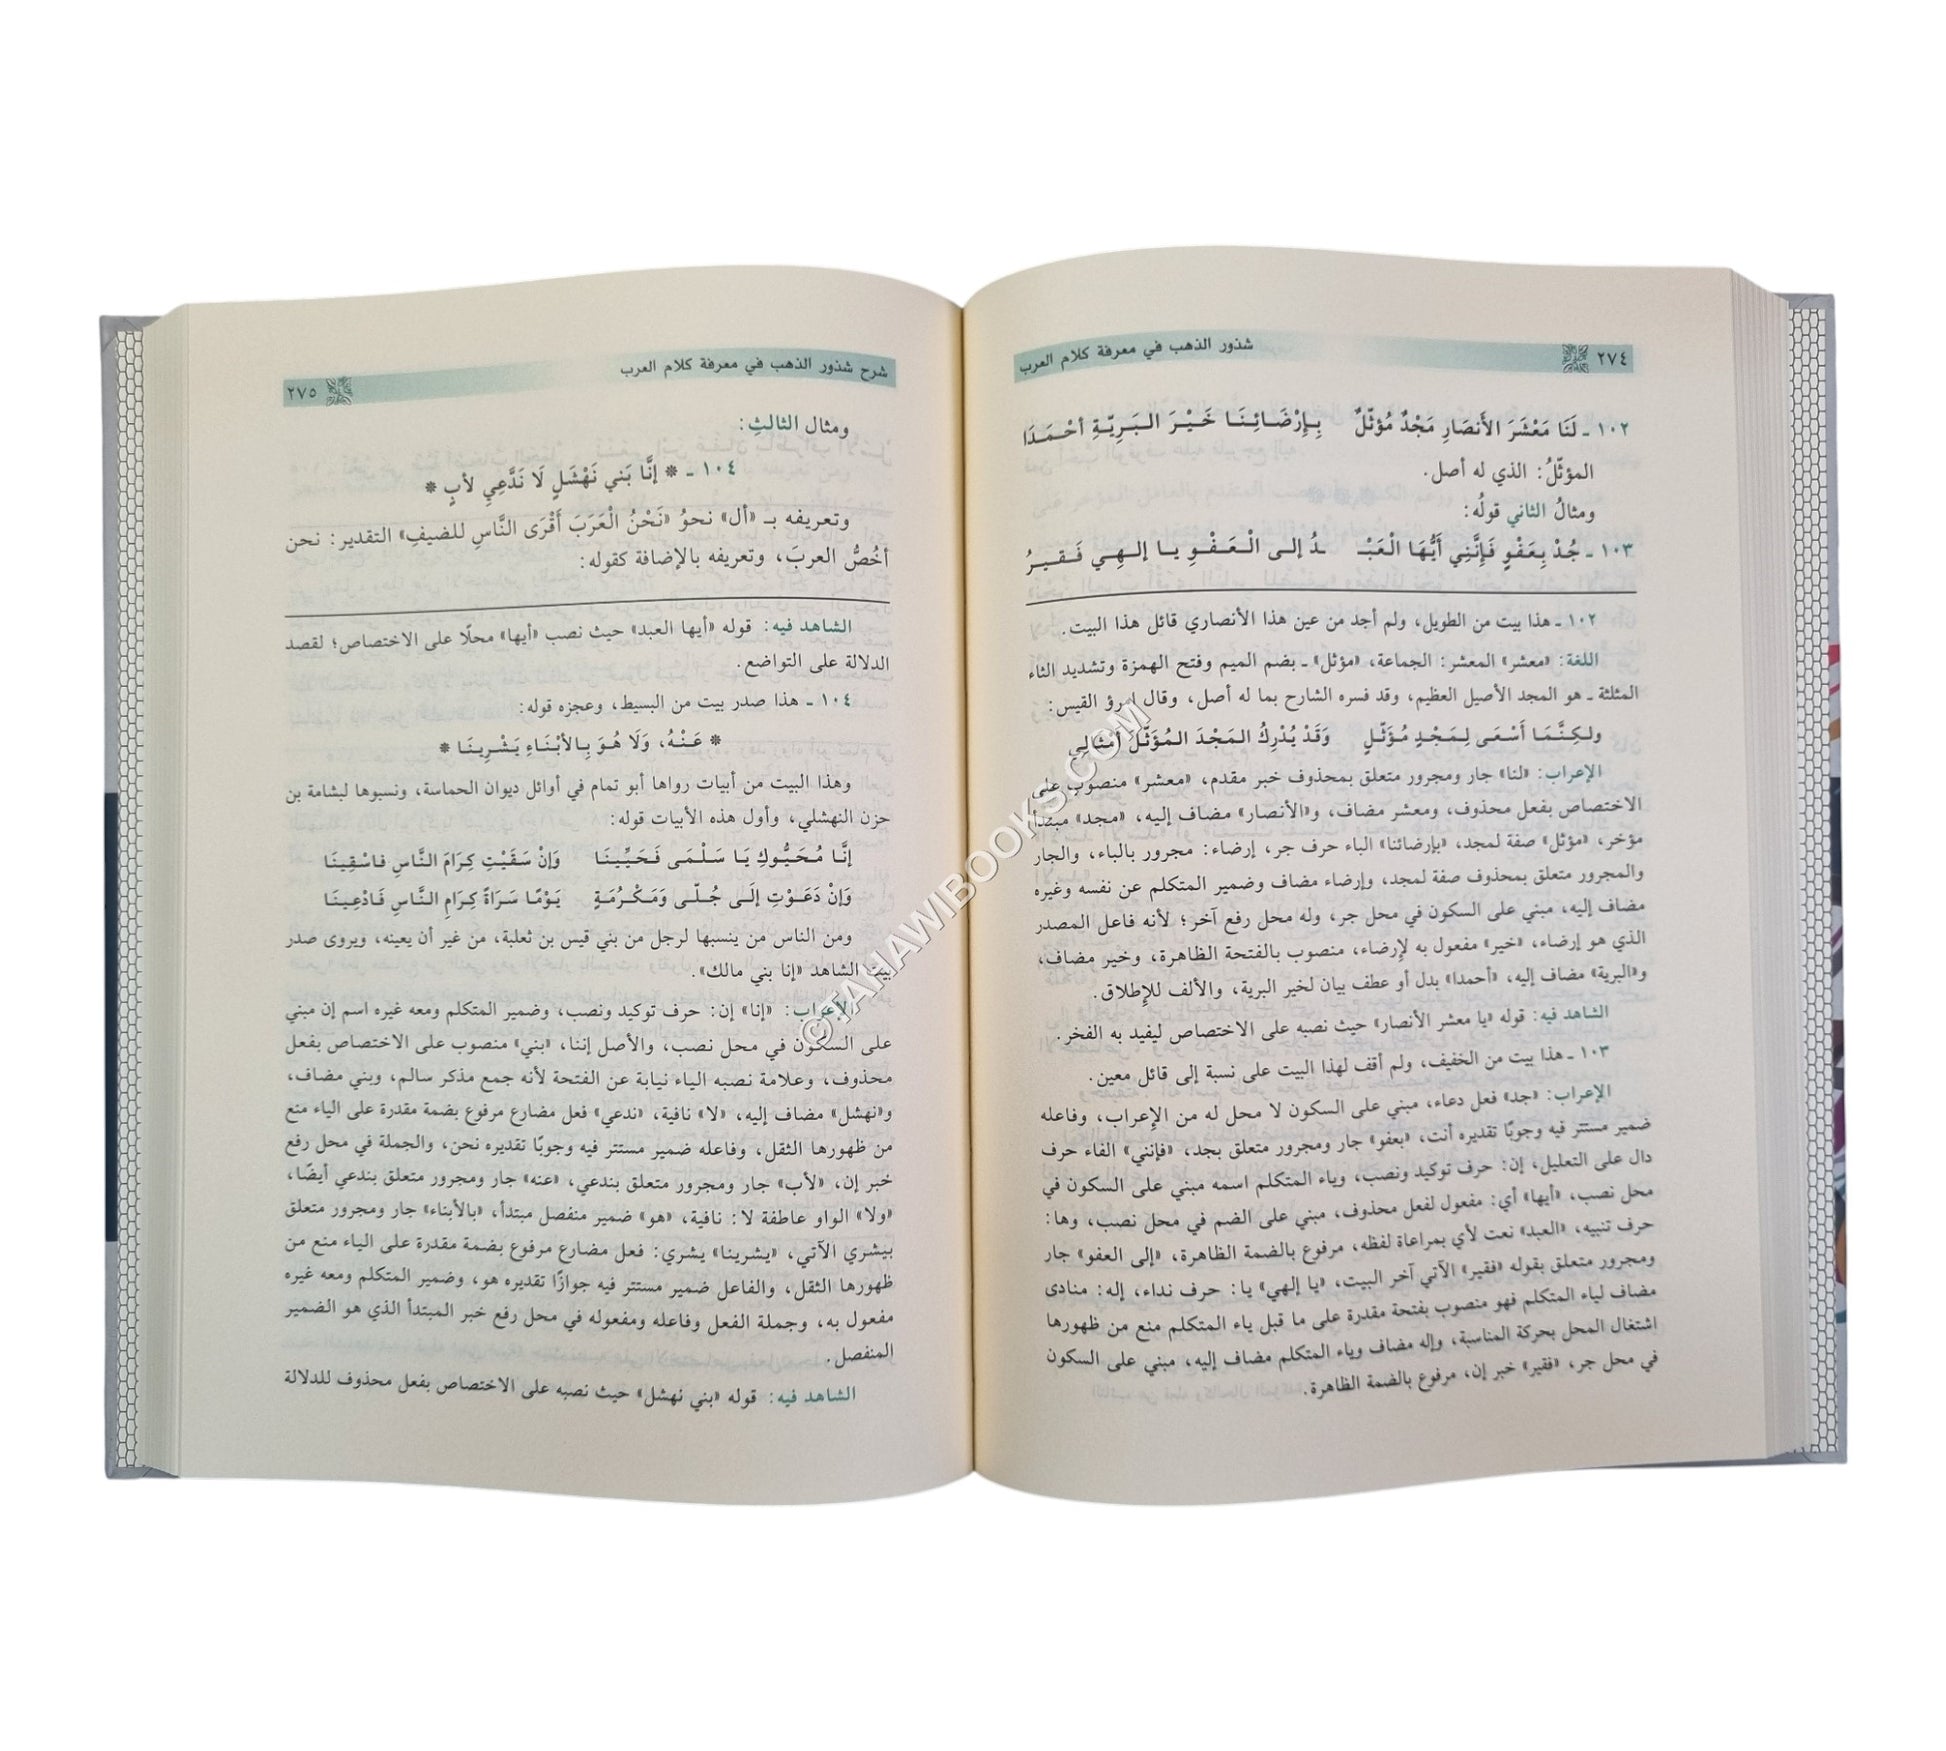 ٢٧٤ شذور الذهب في معرفة كلام العرب
١٠٢ ـ لَنَا مَعْشَرَ الأَنصَارِ مَجْدٌ مُؤثّلٌ بِإِرْضَائِنَا خَيْرَ البَرِيّةِ أحْمَدَا
المؤثّلُ: الذي له أصل.
ومثالُ الثاني قولُه:
١٠٣ ـ جُدْ بِعَفْوٍ فَإِنَّنِي أَيُّهَا الْعَبْـ ـدُ إلى الْعَفْوِ يا إلهِي فَقيرُ
١٠٢ ـ هذا بيت من الطويل، ولم أجد من عين هذا الأنصاري قائل هذا البيت.
اللغة: «معشر» المعشر: الجماعة، «مؤثل» ـ بضم الميم وفتح الهمزة وتشديد الثاء
المثلثة ـ هو المجد الأصيل العظيم، وقد فسره الشارح بما له أصل، وقال امرؤ القيس:
ولكِنَّمَا أَسْعَى لِمَجْدٍ مُؤَثّلٍ وَقَدْ يُدْرِكُ المَجْدَ المُؤَثّلَ أمْثالِي
الإعراب: «لنا» جار ومجرور متعلق بمحذوف خبر مقدم، «معشر» منصوب على
الاختصاص بفعل محذوف، ومعشر مضاف، و«الأنصار» مضاف إليه، «مجد» مبتدأ
مؤخر، «مؤثل» صفة لمجد، «بإرضائنا» الباء حرف جر، إرضاء: مجرور بالباء، والجار
والمجرور متعلق بمحذوف صفة لمجد، وإرضاء مضاف وضمير المتكلم عن نفسه وغيره
مضاف إليه، مبني على السكون في محل جر، وله محل رفع آخر؛ لأنه فاعل المصدر
الذي هو إرضاء، «خير» مفعول به لإرضاء، منصوب بالفتحة الظاهرة، وخير مضاف،
و«البرية» مضاف إليه، «أحمدا» بدل أو عطف بيان لخير البرية، والألف للإطلاق.
الشاهد فيه: قوله «يا معشر الأنصار» حيث نصبه على الاختصاص ليفيد به الفخر.
١٠٣ ـ هذا بيت من الخفيف، ولم أقف لهذا البيت على نسبة إلى قائل معين.
الإعراب: «جد» فعل دعاء، مبني على السكون لا محل له من الإعراب، وفاعله
ضمير مستتر فيه وجوبًا تقديره أنت، «بعفو» جار ومجرور متعلق بجد، «فإنني» الفاء حرف
دال على التعليل، إن: حرف توكيد ونصب، وياء المتكلم اسمه مبني على السكون في
محل نصب، «أيها» أي: مفعول لفعل محذوف، مبني على الضم في محل نصب، وها:
حرف تنبيه، «العبد» نعت لأي بمراعاة لفظه، مرفوع بالضمة الظاهرة، «إلى العفو» جار
ومجرور متعلق بقوله «فقير» الآتي آخر البيت، «يا إلهي» يا: حرف نداء، إله: منادى
مضاف لياء المتكلم فهو منصوب بفتحة مقدرة على ما قبل ياء المتكلم منع من ظهورها
اشتغال المحل بحركة المناسبة، وإله مضاف وياء المتكلم مضاف إليه، مبني على السكون
في محل جر، «فقير» خبر إن، مرفوع بالضمة الظاهرة.
شرح شذور الذهب في معرفة كلام العرب ٢٧٥
ومثال الثالثِ:
١٠٤ ـ * إنَّا بَني نَهْشَلٍ لَا نَدَّعِي لأبٍ *
وتعريفه بـ «أل» نحوُ «نَحْنُ الْعَرَبَ أَقْرَى النَّاسِ للضيفِ» التقدير: نحن
أخُصُّ العربَ، وتعريفه بالإضافة كقوله:
الشاهد فيه: قوله «أيها العبد» حيث نصب «أيها» محلًا على الاختصاص؛ لقصد
الدلالة على التواضع.
١٠٤ ـ هذا صدر بيت من البسيط، وعجزه قوله:
* عَنْهُ، وَلَا هُوَ بِالأبْنَاءِ يَشْرِينَا *
وهذا البيت من أبيات رواها أبو تمام في أوائل ديوان الحماسة، ونسبوها لبشامة بن
حزن النهشلي، وأول هذه الأبيات قوله:
إنَّا مُحَيُّوكِ يَا سَلْمَى فَحَيِّينَا وَإنْ سَقَيْتِ كِرَامَ النَّاسِ فاسْقِينَا
وَإنْ دَعَوْتِ إلَى جُلّى وَمَكْرُمَةٍ يَوْمًا سَرَاةَ كِرَامِ النَّاسِ فَادْعِينَا
ومن الناس من ينسبها لرجل من بني قيس بن ثعلبة، من غير أن يعينه، ويروى صدر
بيت الشاهد «إنا بني مالك».
الإعراب: «إنا» إن: حرف توكيد ونصب، وضمير المتكلم ومعه غيره اسم إن مبني
على السكون في محل نصب، والأصل إننا، «بني» منصوب على الاختصاص بفعل
محذوف، وعلامة نصبه الياء نيابة عن الفتحة لأنه جمع مذكر سالم، وبني مضاف،
و«نهشل» مضاف إليه، «لا» نافية، «ندعي» فعل مضارع مرفوع بضمة مقدرة على الياء منع
من ظهورها الثقل، وفاعله ضمير مستتر فيه وجوبًا تقديره نحن، والجملة في محل رفع
خبر إن، «لأب» جار ومجرور متعلق بندعي، «عنه» جار ومجرور متعلق بندعي أيضًا،
«ولا» الواو عاطفة لا: نافية، «هو» ضمير منفصل مبتدأ، «بالأبناء» جار ومجرور متعلق
بيشري الآتي، «يشرينا» يشري: فعل مضارع مرفوع بضمة مقدرة على الياء منع من
ظهورها الثقل، والفاعل ضمير مستتر فيه جوازًا تقديره هو، وضمير المتكلم ومعه غيره
مفعول به، وجملة الفعل وفاعله ومفعوله في محل رفع خبر المبتدأ الذي هو الضمير
المنفصل.
الشاهد فيه: قوله «بني نهشل» حيث نصبه على الاختصاص بفعل محذوف للدلالة
©TAHAWIBOOKS.COM